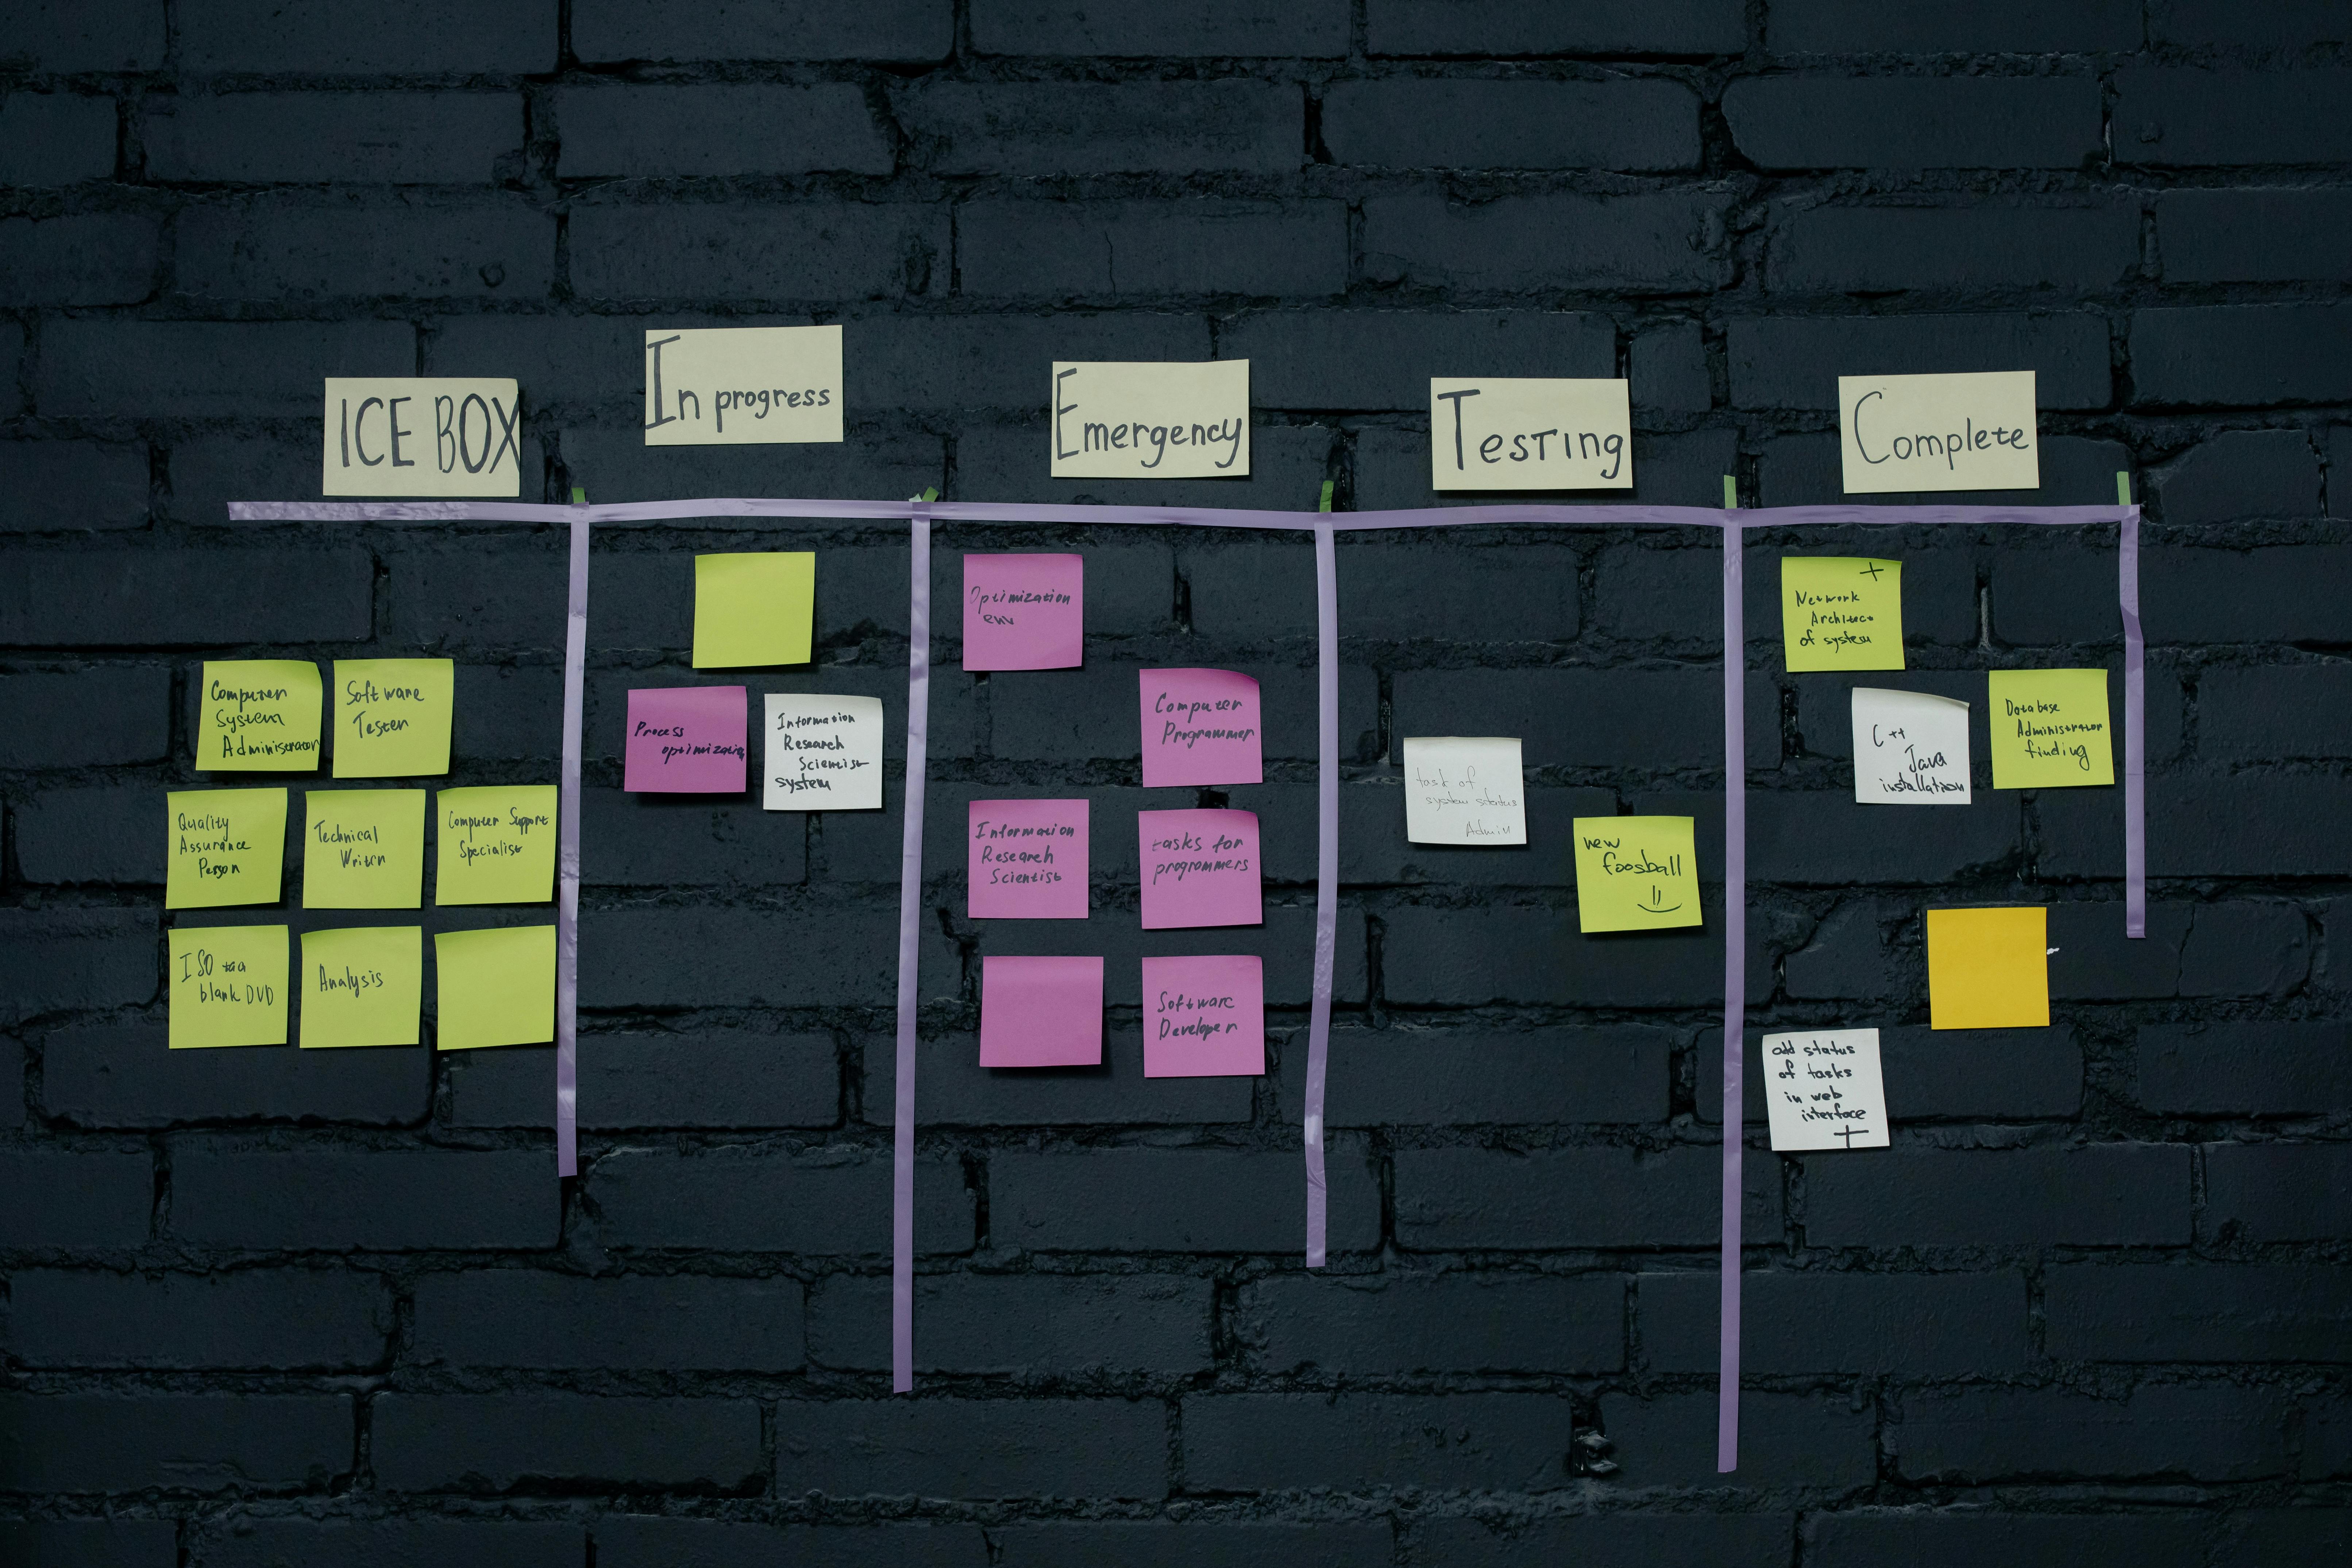 ICE BOX
In progress
Emergency
Testing
Complete
Computer
System
Administrator
Software
Tester
Quality
Assurance
Person
Technical
Writer
Computer Support
Specialist
ISO
blank DVD
Analysis
Process
optimization
Information
Research
Scientist
system
Optimization
env
Computer
Programmer
Information
Research
Scientist
tasks for
programmers
Software
Developer
task of
system status
Admin
new
foosball
+
Network
Architect
of system
C++
Java
installation
Database
Administrator
finding
add status
of tasks
in web
interface
+